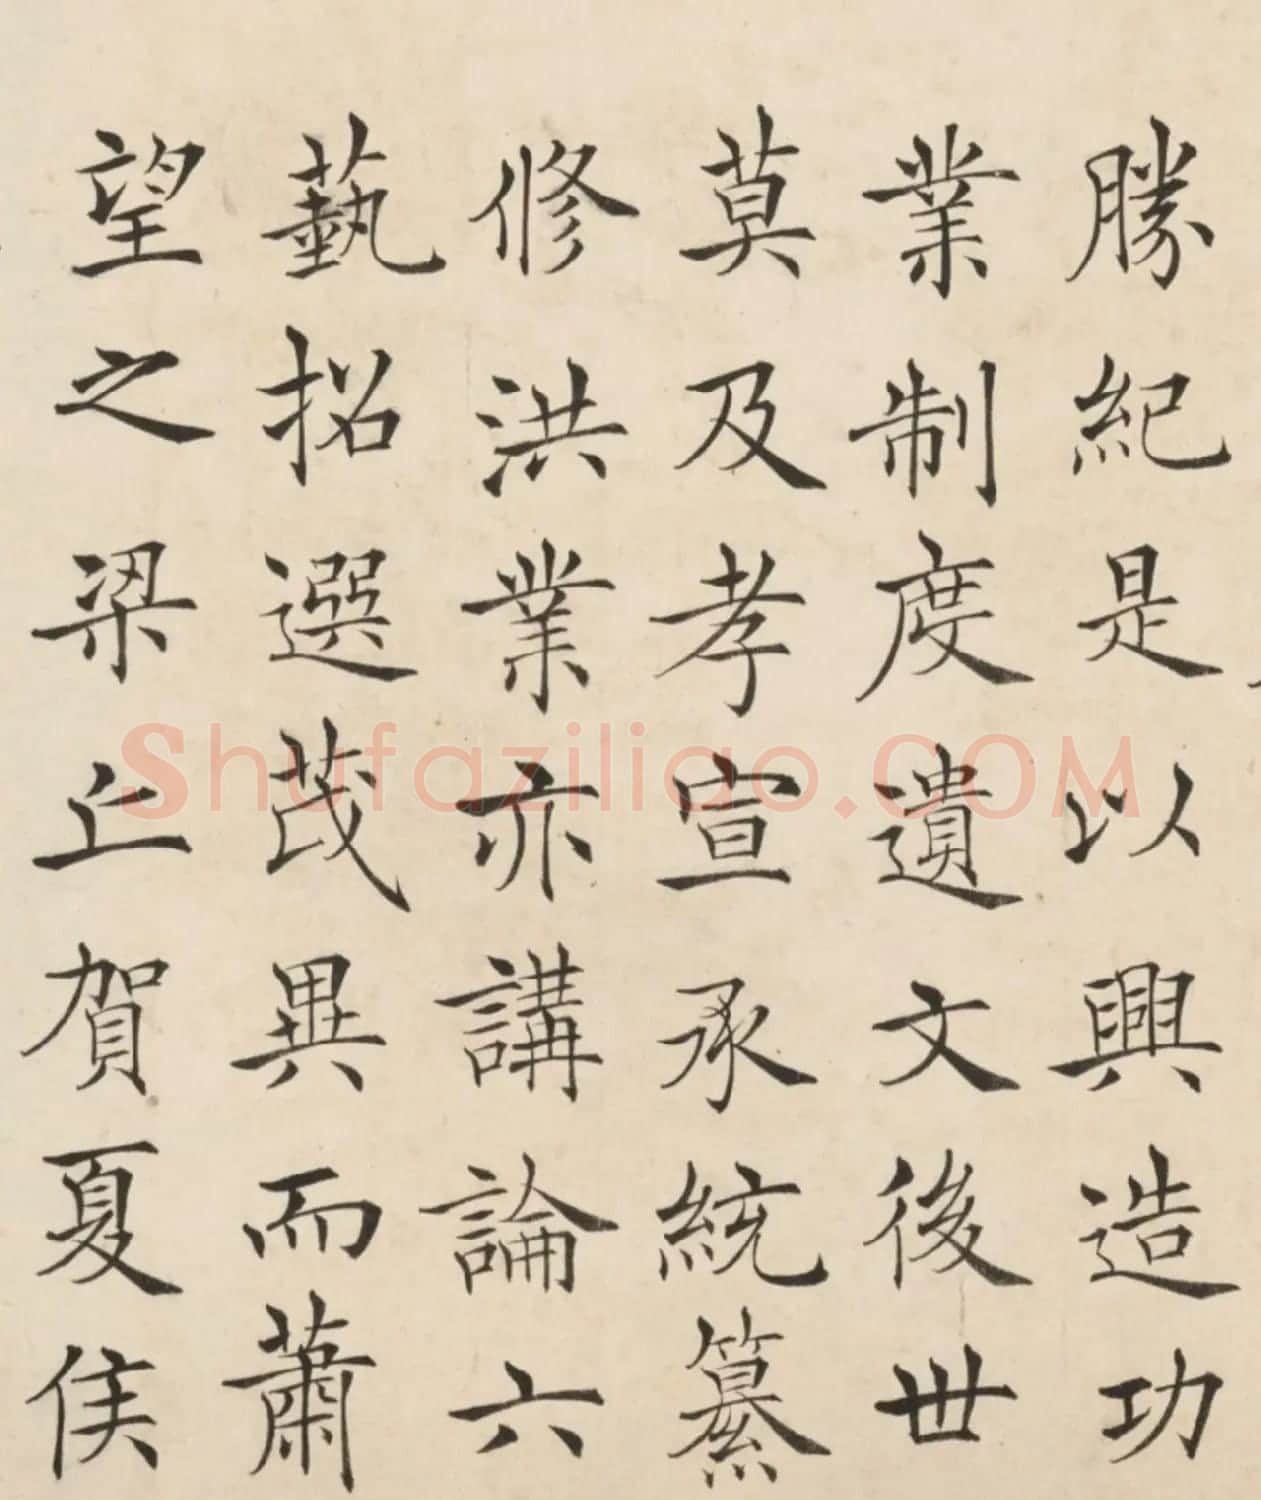 勝紀是以興造功
業制度遺文後世
莫及孝宣承統纂
修洪業亦講論六
藝招選茂異而蕭
望之梁丘賀夏侯
Shufaziliao.COM